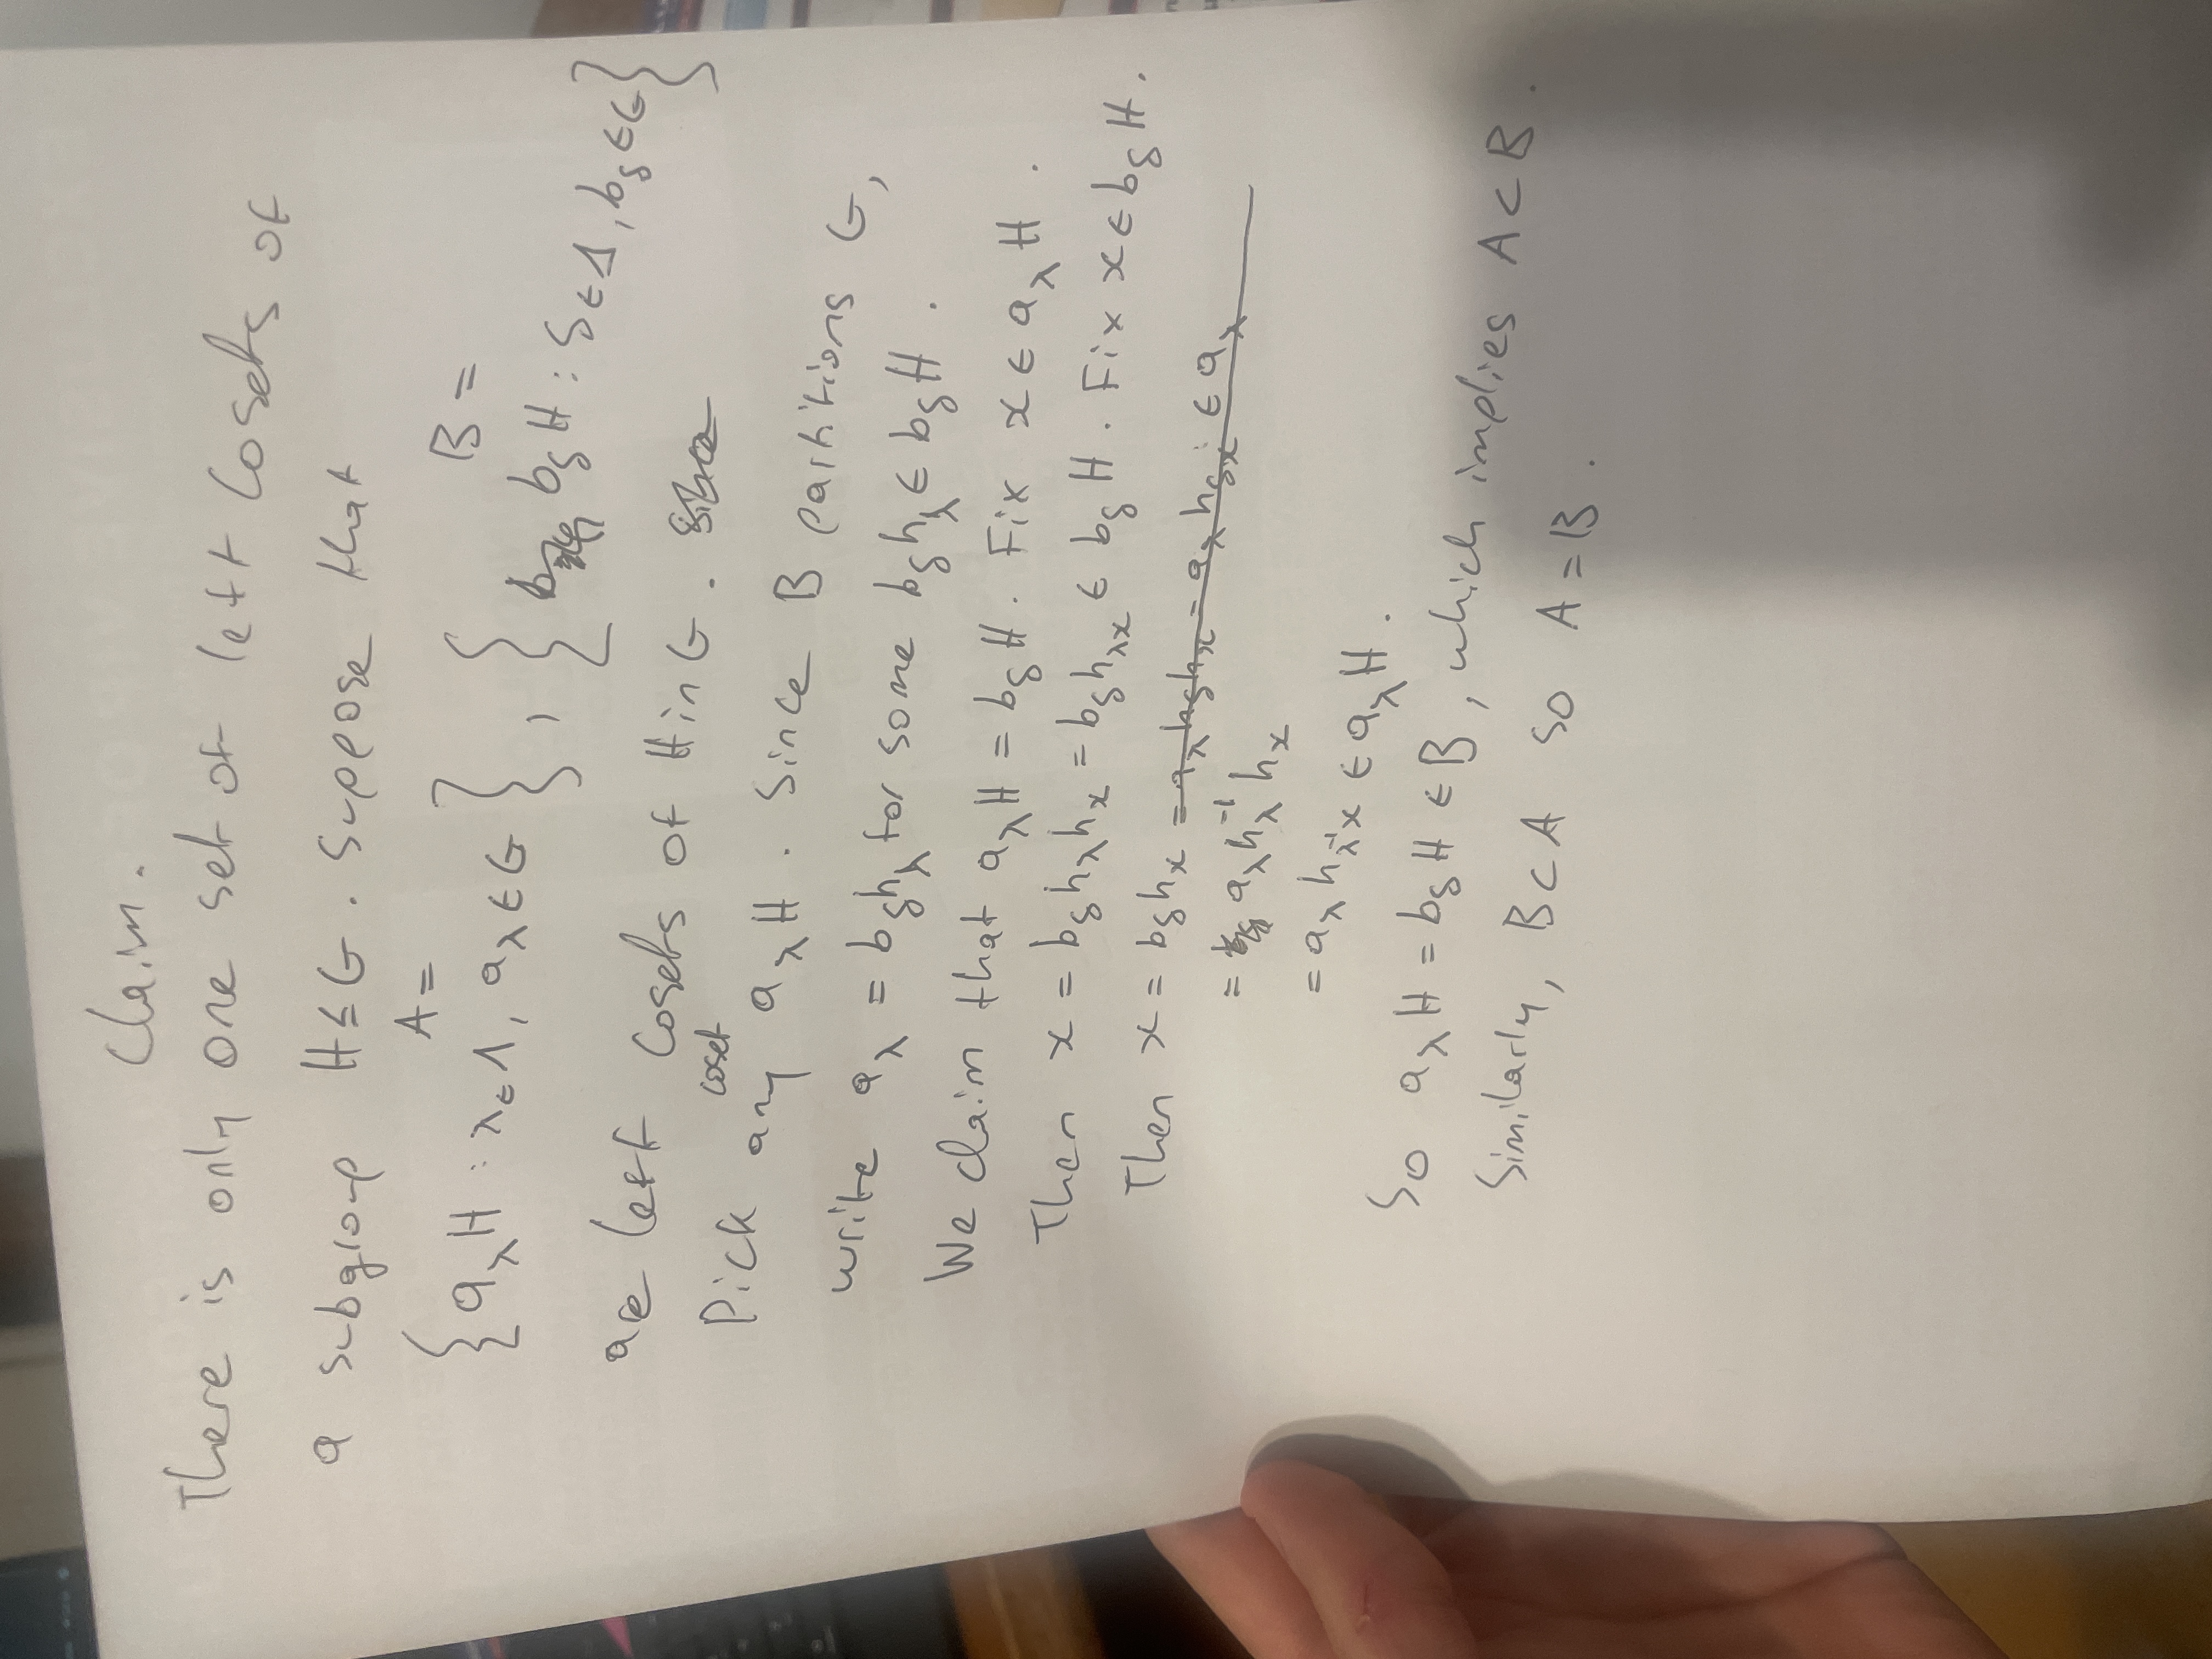 Claim.
There is only one set of left cosets of
a subgroup H ≤ G. Suppose that
A = B =
{a_λ H : λ ∈ Λ, a_λ ∈ G}, { b_δ H : δ ∈ Δ, b_δ ∈ G}
are left cosets of H in G.
Pick any coset a_λ H. Since B partitions G,
write a_λ = b_δ h_λ for some b_δ h_λ ∈ b_δ H.
We claim that a_λ H = b_δ H. Fix x ∈ a_λ H.
Then x = b_δ h_λ h_x = b_δ h_{λx} ∈ b_δ H. Fix x ∈ b_δ H.
Then x = b_δ h_x = a_λ h_δ h_x = a_λ h_{δx} ∈ a_λ
= a_λ h_λ^{-1} h_x
= a_λ h_{λ^{-1}x} ∈ a_λ H.
So a_λ H = b_δ H ∈ B, which implies A ⊂ B.
Similarly, B ⊂ A so A = B.